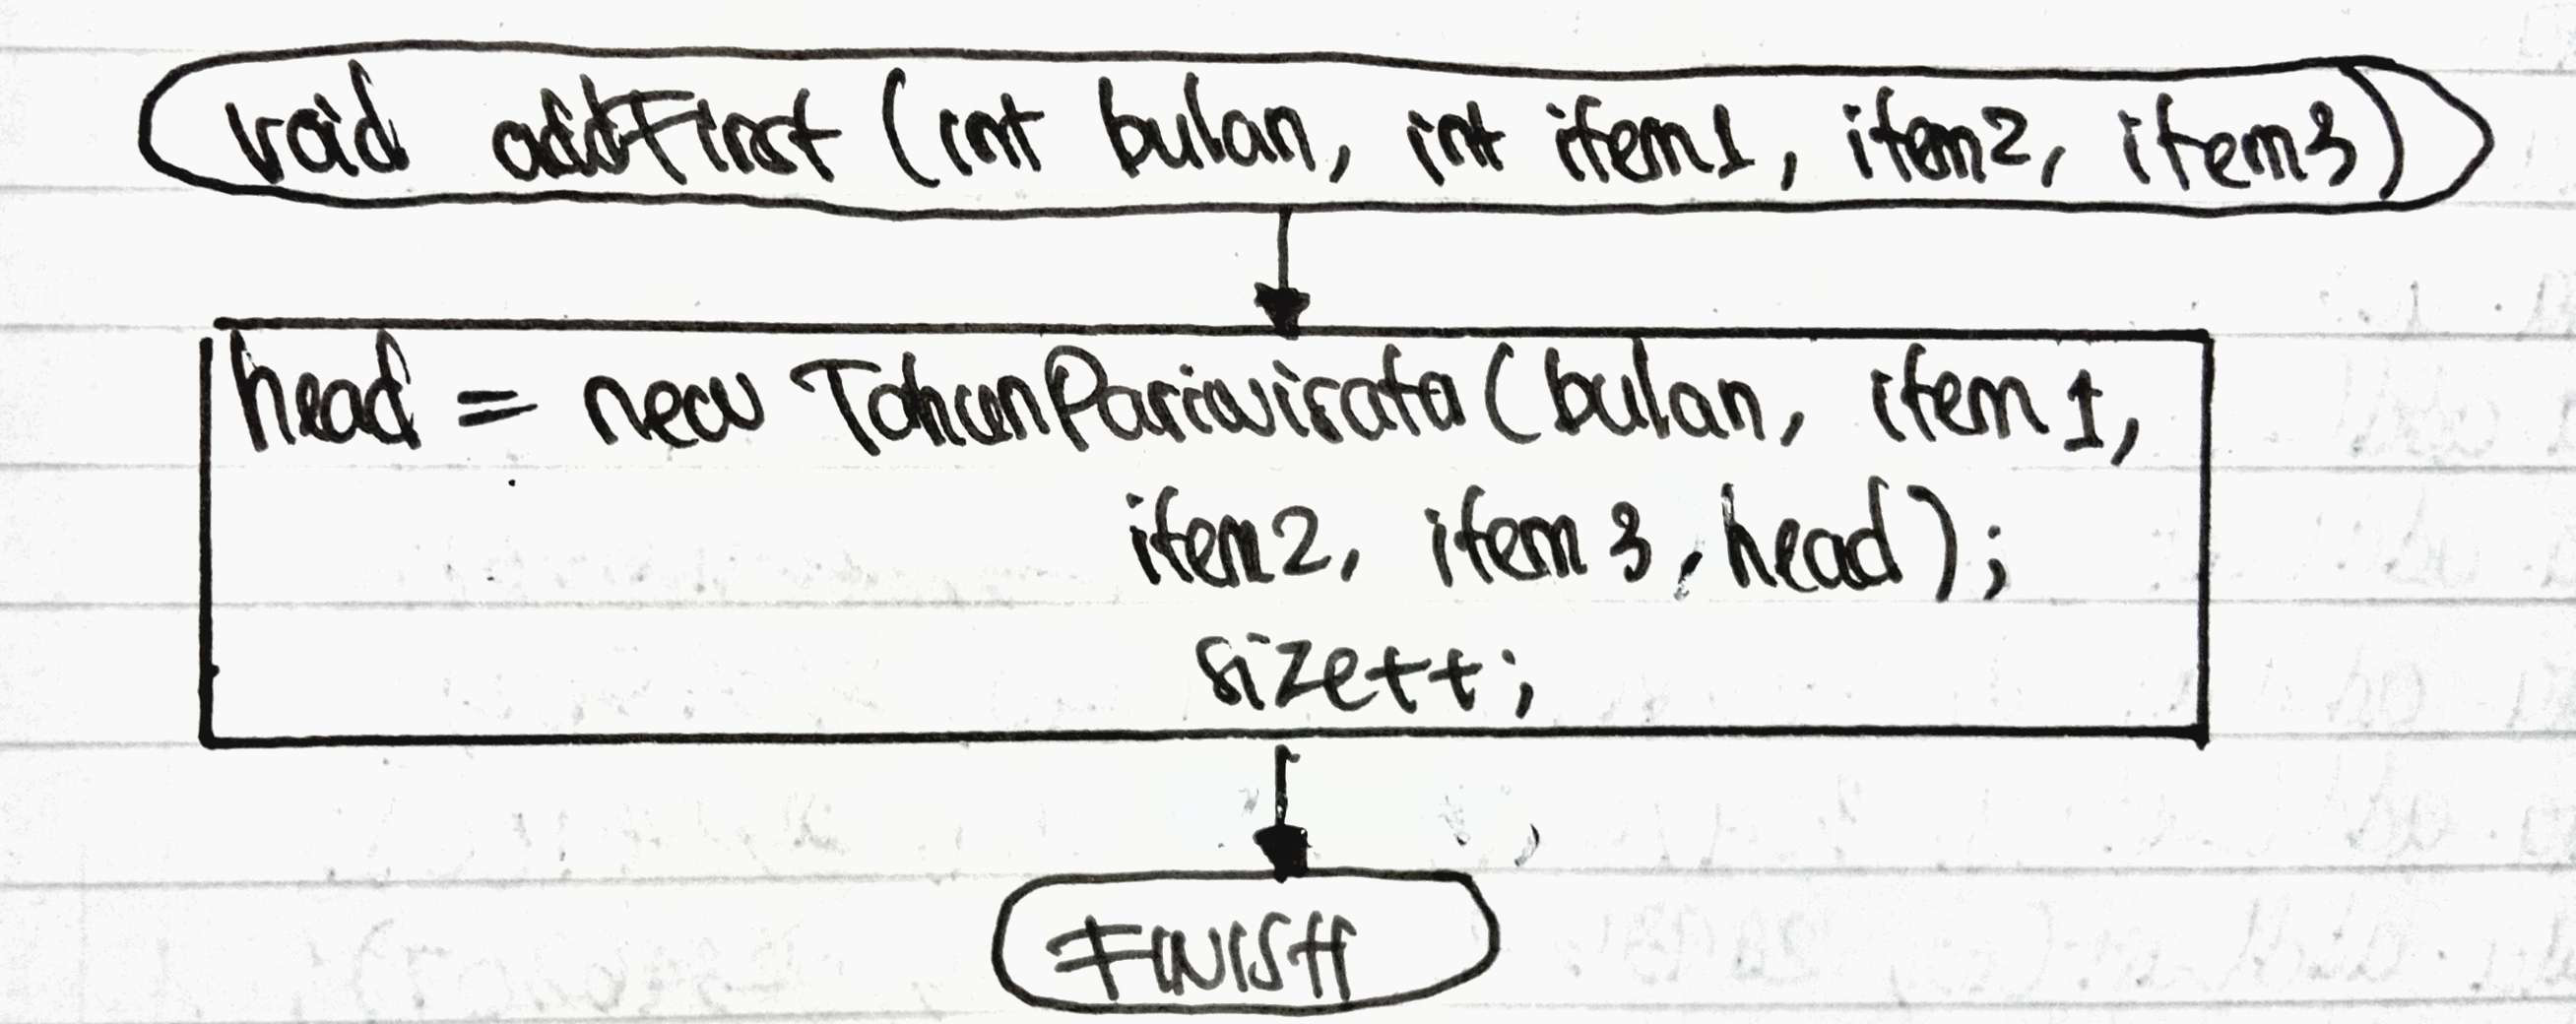 void addFirst (int bulan, int item1, item2, item3)
head = new TahunPariwisata (bulan, item 1,
item2, item 3, head);
size++;
FINISH